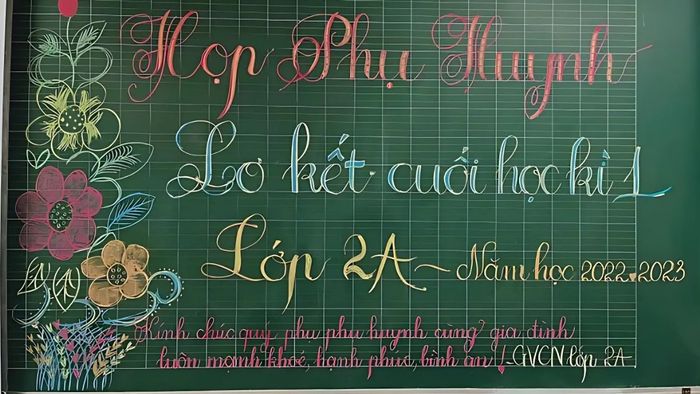 Họp Phụ Huynh
Sơ kết cuối học kì 1
Lớp 2A ~ Năm học 2022-2023
Kính chúc quý phụ phụ huynh cùng gia đình
luôn mạnh khoẻ, hạnh phúc, bình an! - GVCN lớp 2A